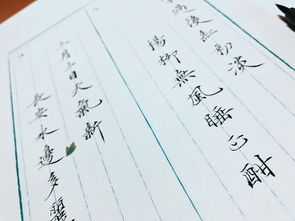 過後紅初淡
楊柳無風睡正酣
三月三日天氣新
長安水邊多麗